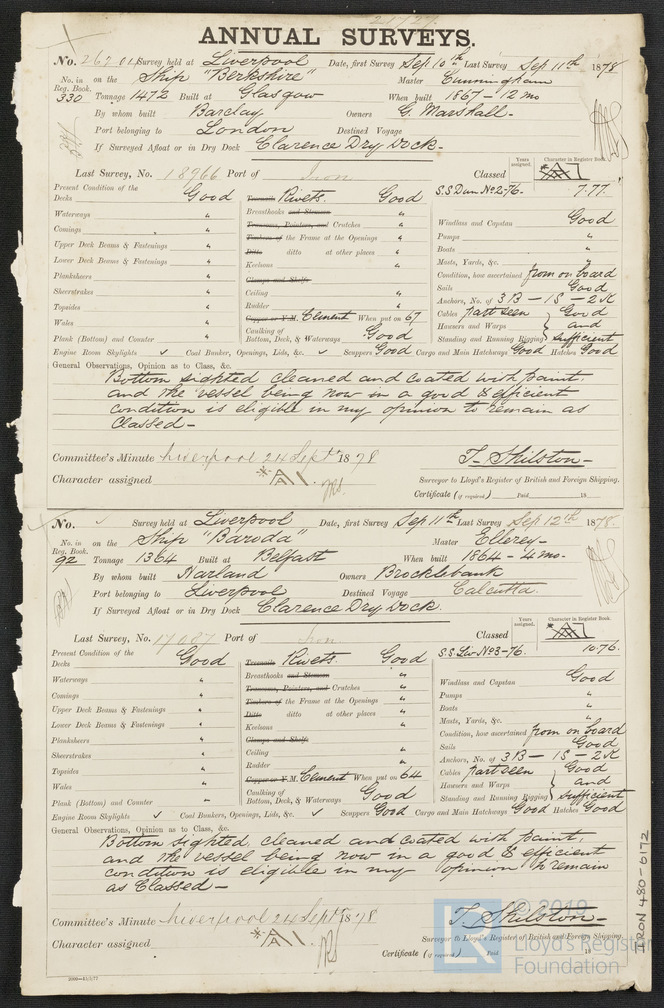 ANNUAL SURVEYS.
No. 26701 Survey held at Liverpool Date, first Survey Sep 10th Last Survey Sep 11th 1878
No. in Reg. Book. 330 on the Ship "Berkshire" Master Cunningham
Tonnage 1472 Built at Glasgow When built 1867 - 12 mo
By whom built Barclay Owners G. Marshall -
Port belonging to London Destined Voyage
If Surveyed Afloat or in Dry Dock Clarence Dry Dock -
Last Survey, No. 18966 Port of Iron Classed Years assigned. Character in Register Book.
S.S Dun No 2-76. 7.77
Present Condition of the
Decks Good Treenails Rivets. Good
Waterways " Breasthooks and Stemson " Windlass and Capstan Good
Comings " Transoms, Pointers, and Crutches " Pumps "
Upper Deck Beams & Fastenings " Timbers of the Frame at the Openings " Boats "
Lower Deck Beams & Fastenings " Ditto ditto at other places " Masts, Yards, &c. "
Planksheers " Keelsons " Condition, how ascertained from on board
Sheerstrakes " Clamps and Shelfs Sails Good
Topsides " Ceiling " Anchors, No. of 3B - 1S - 2K
Wales " Rudder " Cables part seen Good
Plank (Bottom) and Counter " Copper or Y.M. Cement When put on 67 Hawsers and Warps and
Caulking of Bottom, Deck, & Waterways Good Standing and Running Rigging sufficient
Engine Room Skylights ✓ Coal Bunker, Openings, Lids, &c. ✓ Scuppers Good Cargo and Main Hatchways Good Hatches Good
General Observations, Opinion as to Class, &c.
Bottom sighted cleaned and coated with paint,
and the vessel being now in a good & efficient
condition is eligible in my opinion to remain as
Classed -
Committee's Minute Liverpool 24 Sept 1878 T. Skilston -
Character assigned *A Surveyor to Lloyd's Register of British and Foreign Shipping.
Certificate (if required) Paid 18
No. ✓ Survey held at Liverpool Date, first Survey Sep 11th Last Survey Sep 12th 1878.
No. in Reg. Book. 92 on the Ship "Baroda" Master Ellerey -
Tonnage 1364 Built at Belfast When built 1864 - 4 mo -
By whom built Harland Owners Brocklebank
Port belonging to Liverpool Destined Voyage Calcutta.
If Surveyed Afloat or in Dry Dock Clarence Dry Dock.
Last Survey, No. 17087 Port of Iron Classed Years assigned. Character in Register Book.
S.S. Liv No 3-76. 10.76.
Present Condition of the
Decks Good Treenails Rivets. Good
Waterways " Breasthooks and Stemson " Windlass and Capstan Good
Comings " Transoms, Pointers, and Crutches " Pumps "
Upper Deck Beams & Fastenings " Timbers of the Frame at the Openings " Boats "
Lower Deck Beams & Fastenings " Ditto ditto at other places " Masts, Yards, &c. "
Planksheers " Keelsons " Condition, how ascertained from on board
Sheerstrakes " Clamps and Shelfs Sails Good
Topsides " Ceiling " Anchors, No. of 3B - 1S - 2K
Wales " Rudder " Cables part seen Good
Plank (Bottom) and Counter " Copper or Y.M. Cement When put on 64 Hawsers and Warps and
Caulking of Bottom, Deck, & Waterways Good Standing and Running Rigging sufficient
Engine Room Skylights ✓ Coal Bunkers, Openings, Lids, &c. ✓ Scuppers Good Cargo and Main Hatchways Good Hatches Good
General Observations, Opinion as to Class, &c.
Bottom sighted, cleaned and coated with paint,
and the vessel being now in a good & efficient
condition is eligible in my opinion to remain
as Classed -
Committee's Minute Liverpool 24 Sept 1878 T. Skilston -
Character assigned *A1 Surveyor to Lloyd's Register of British and Foreign Shipping.
Certificate (if required) Paid 18
IRON 480-6172
LR © 2019
Lloyd's Register
Foundation